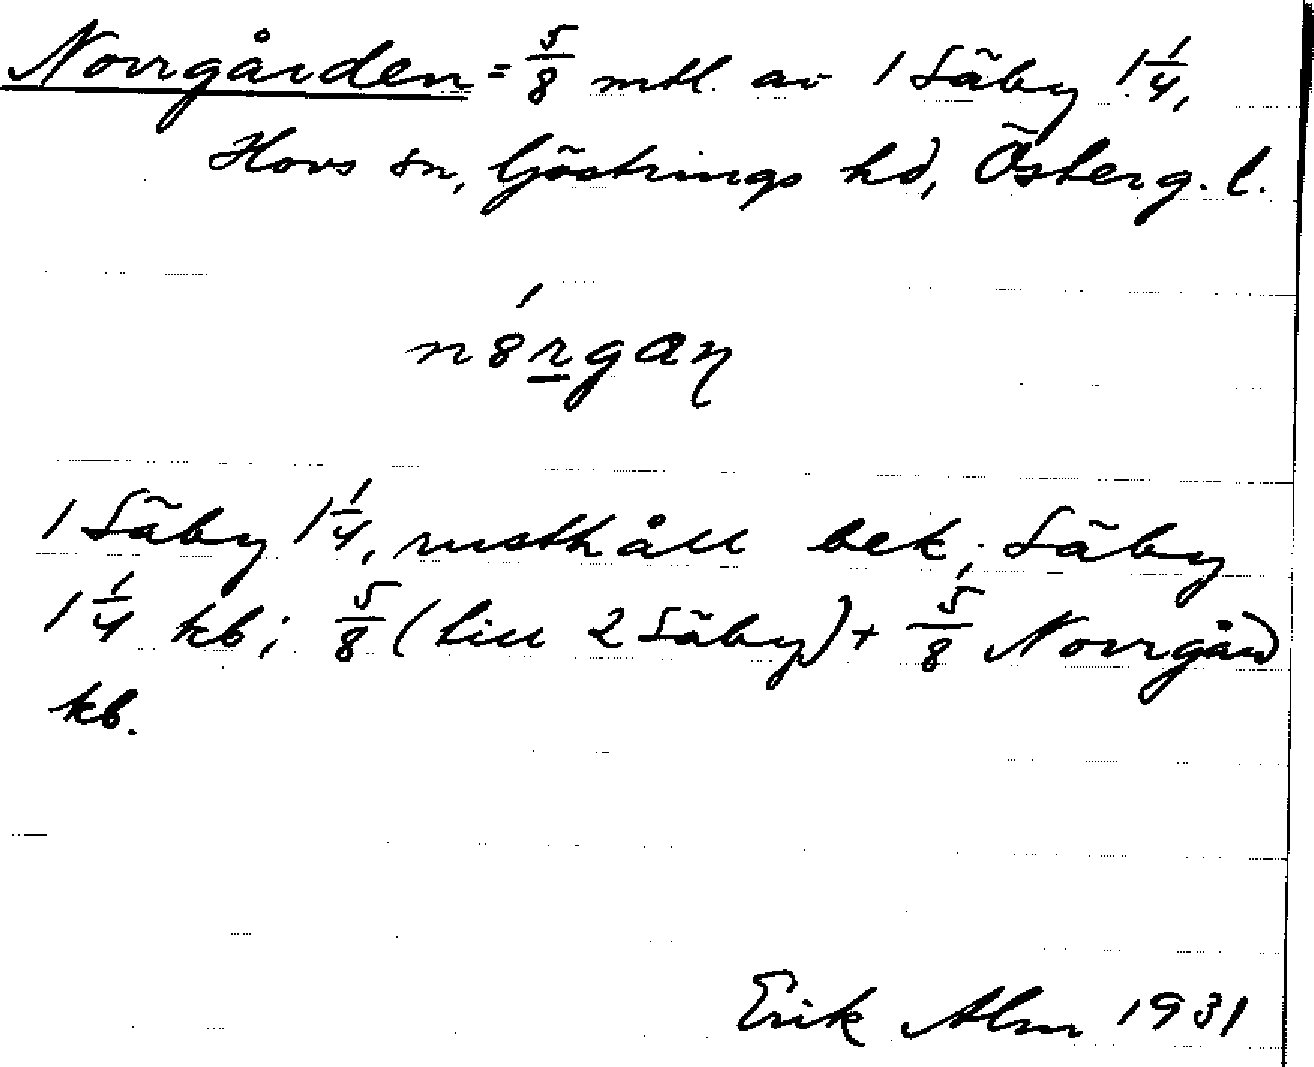 Norrgården = 5/8 mtl. av 1 Säby 1 1/4,
Hovs sn, Göstrings hd, Österg. l.
n8́rgaŋ
1 Säby 1 1/4, rusthåll bek; Säby
1 1/4 kb; 5/8 (till 2 Säby) + 5/8 Norrgård
kb.
Erik Alm 1931